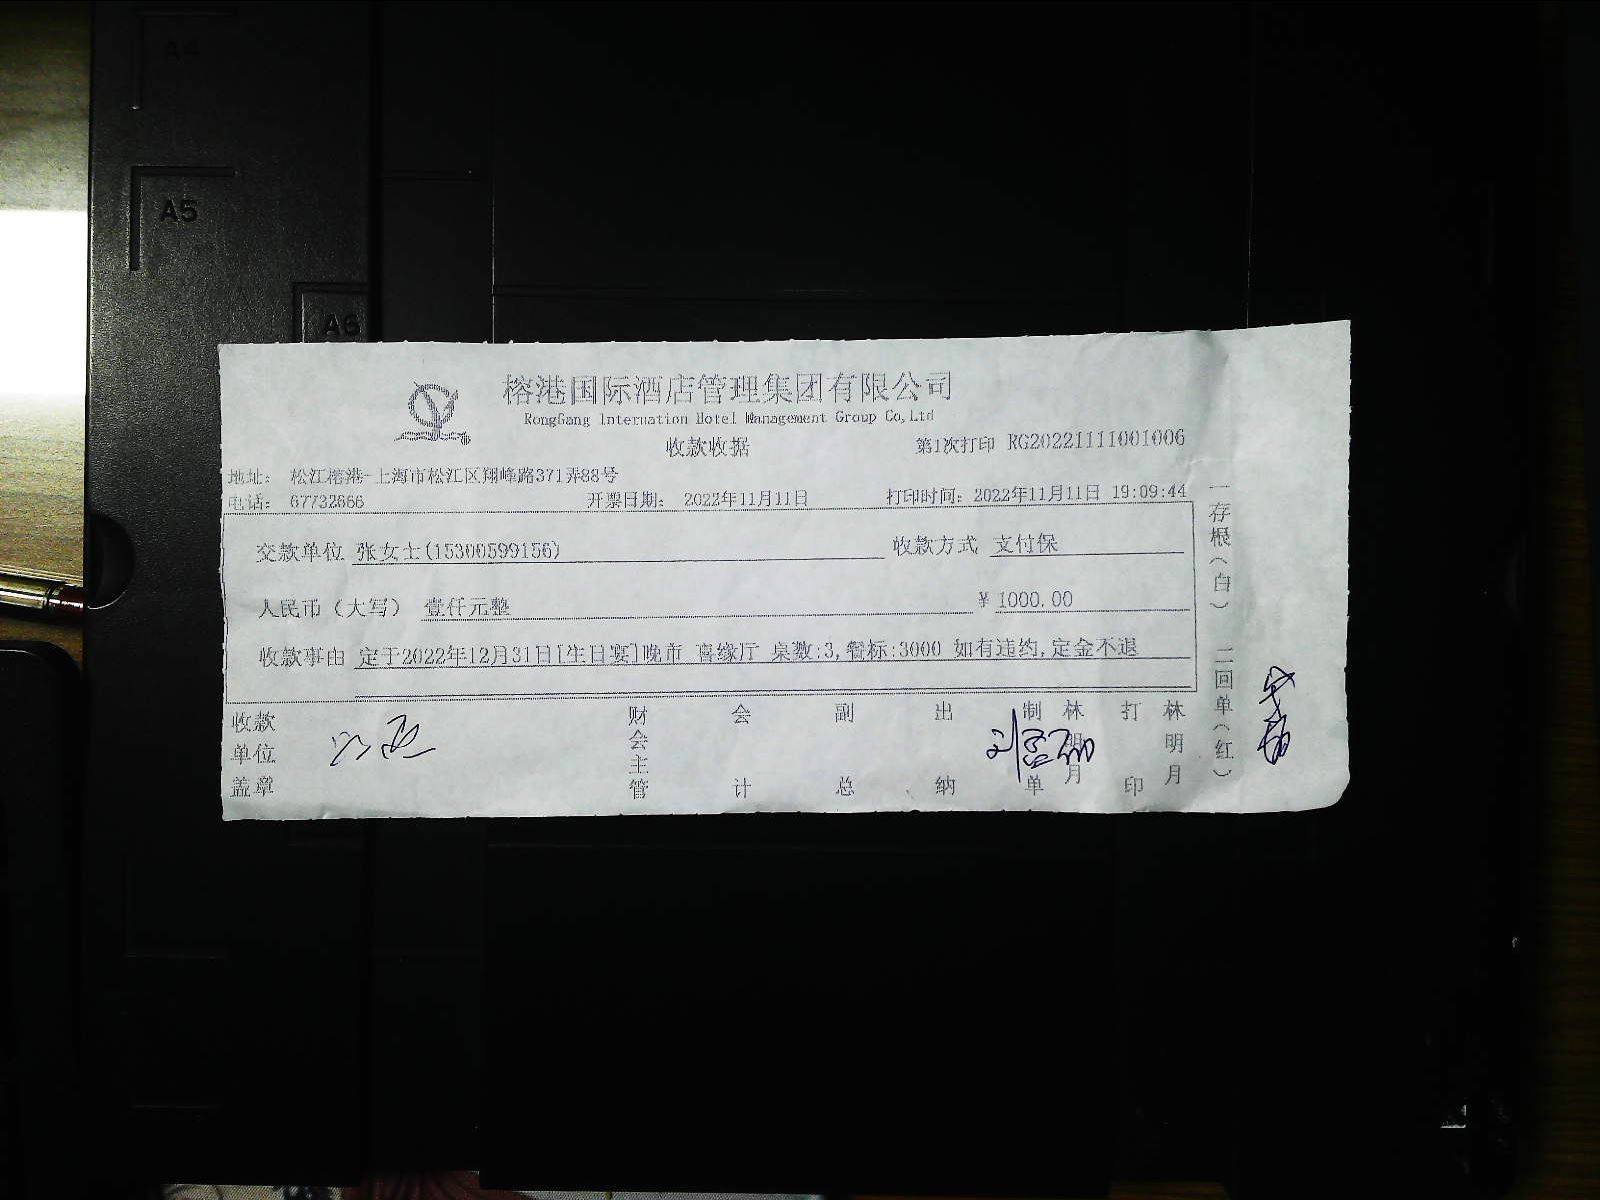 A4
A5
A6
榕港国际酒店管理集团有限公司
RongGang Internation Hotel Management Group Co,Ltd
收款收据
第1次打印 RG20221111001006
地址： 松江榕港-上海市松江区翔峰路371弄88号
电话： 67732666 开票日期： 2022年11月11日 打印时间：2022年11月11日 19:09:44
交款单位 张女士(15300599156) 收款方式 支付保
人民币（大写） 壹仟元整 ¥ 1000.00
收款事由 定于2022年12月31日[生日宴]晚市 喜缘厅 桌数:3,餐标:3000 如有违约,定金不退
收款单位盖章 财会主管 会计 副总 出纳 制单 林明月 打印 林明月
一存根（白） 二回单（红）